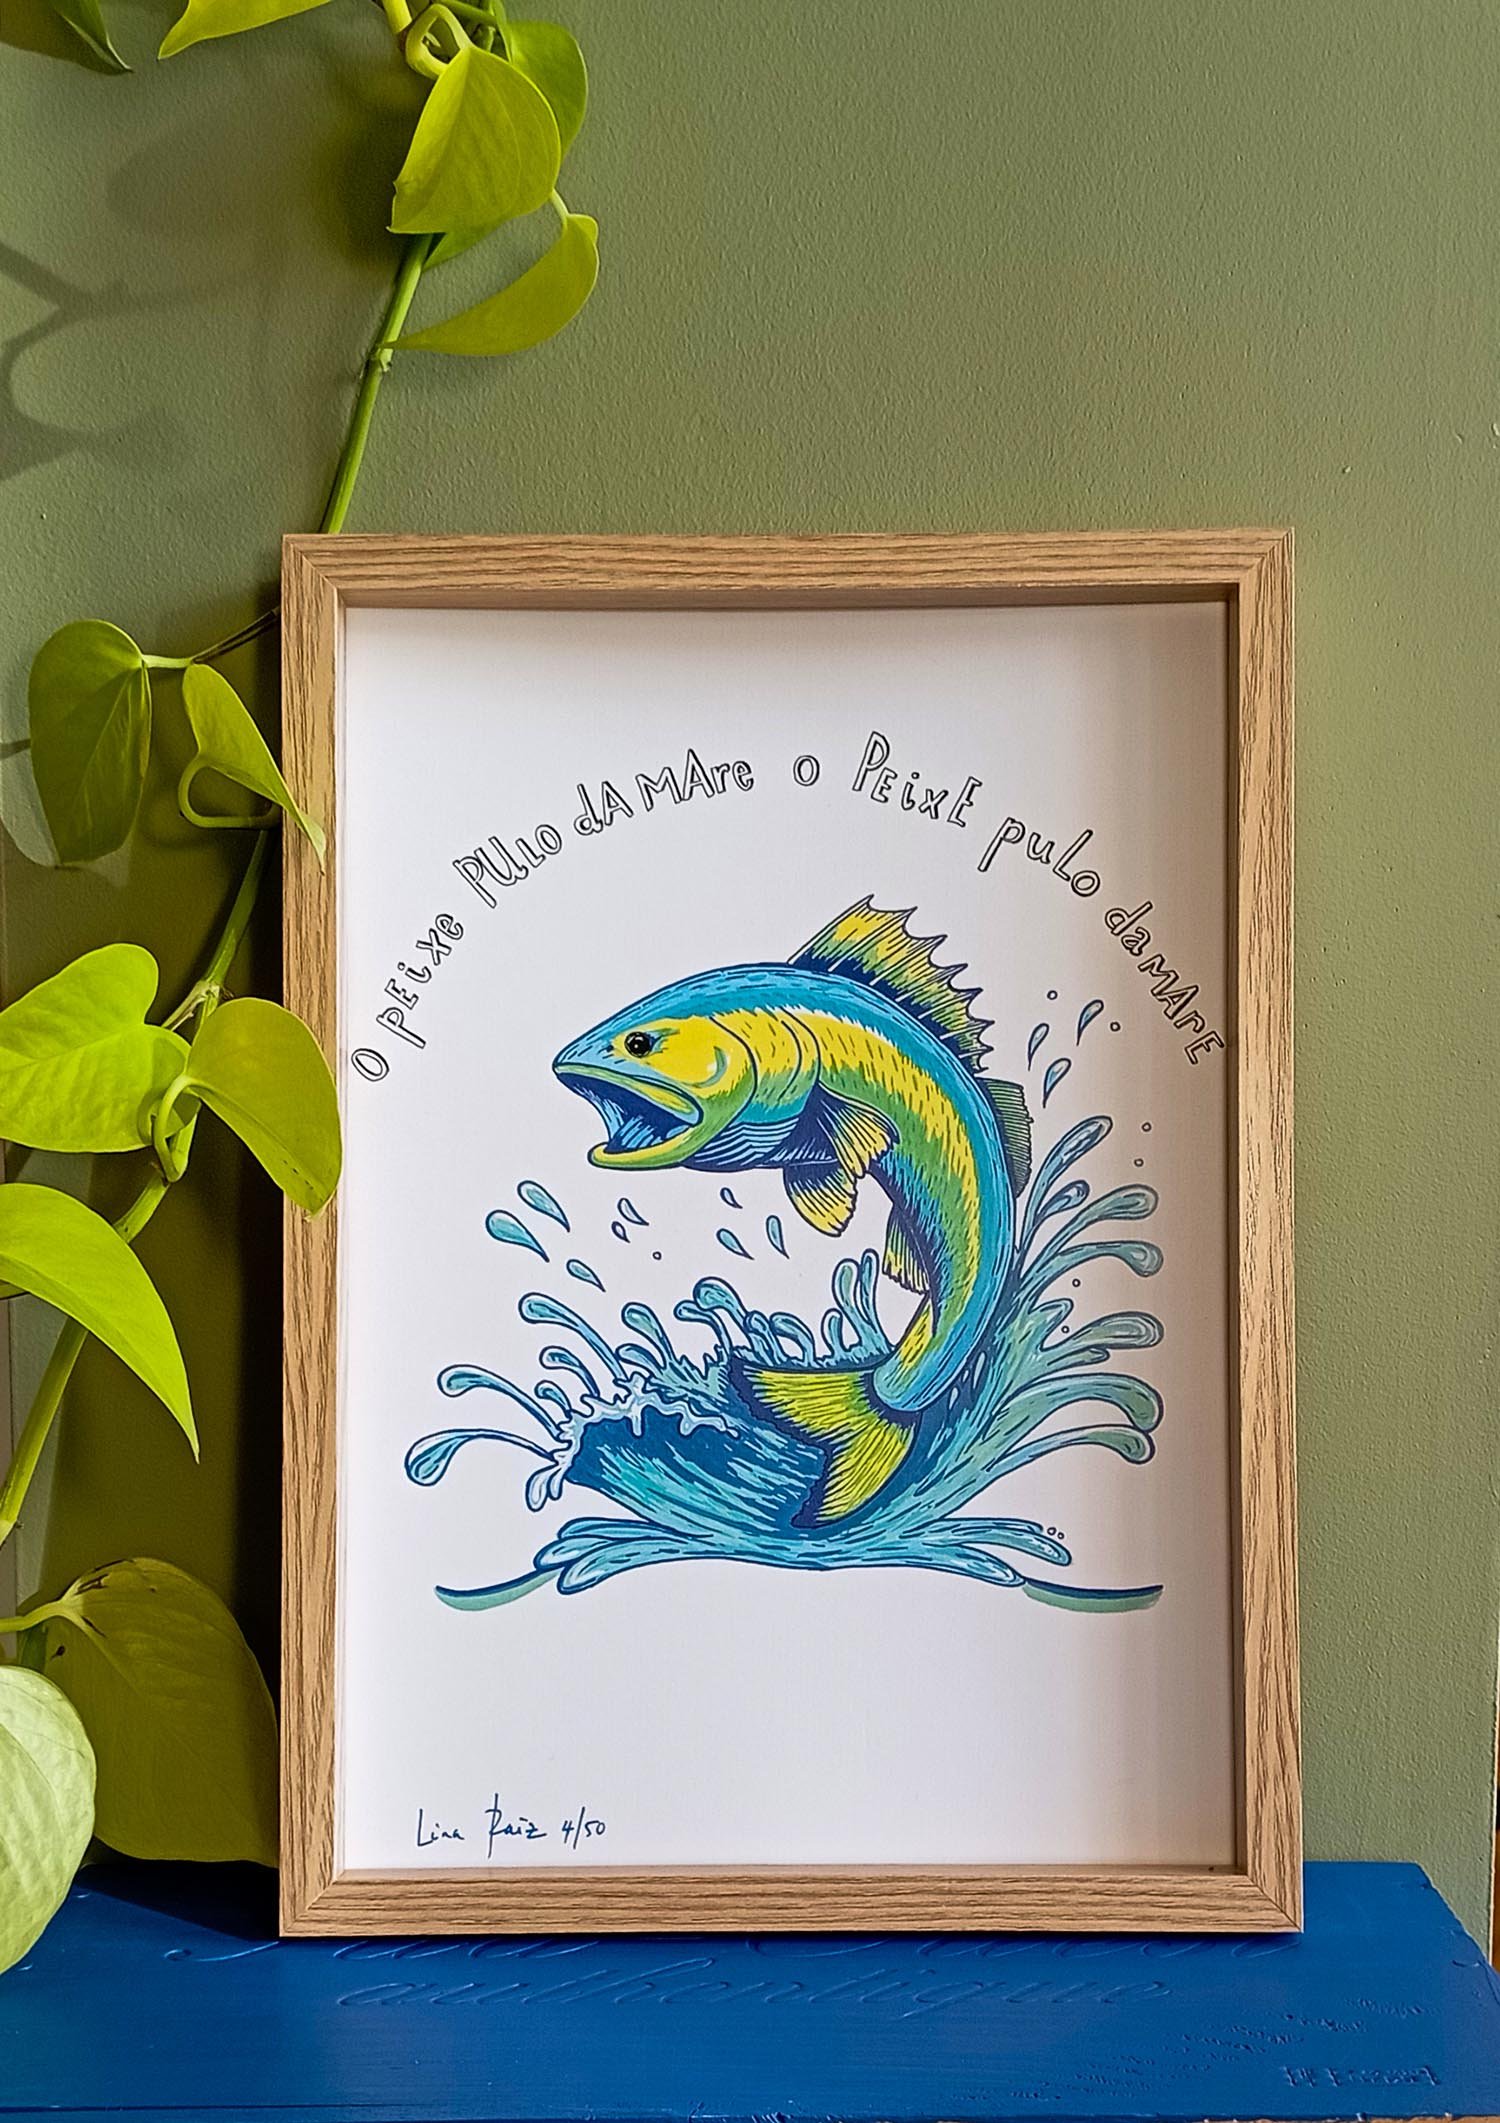 O PEixe PULLO dA MAre O PEixE puLo damArE
Lina Raiz 4/50
authentique